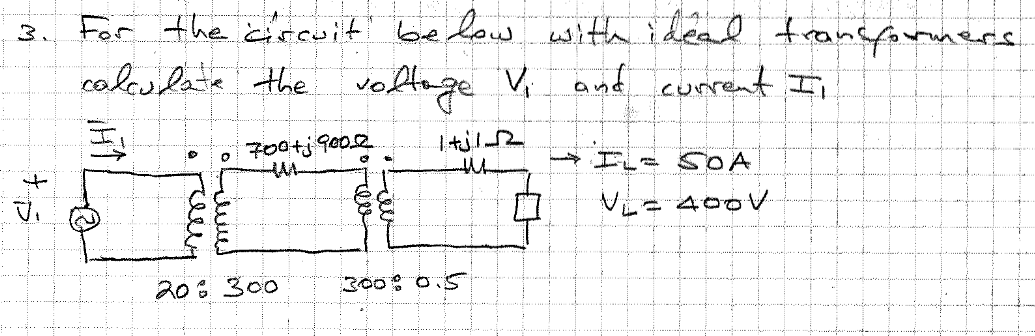 3. For the circuit below with ideal transformers
calculate the voltage V₁ and current I₁
I₁
700+j900Ω
1+j1Ω
→ IL = 50A
+
V₁
VL = 400V
20:300
300:0.5